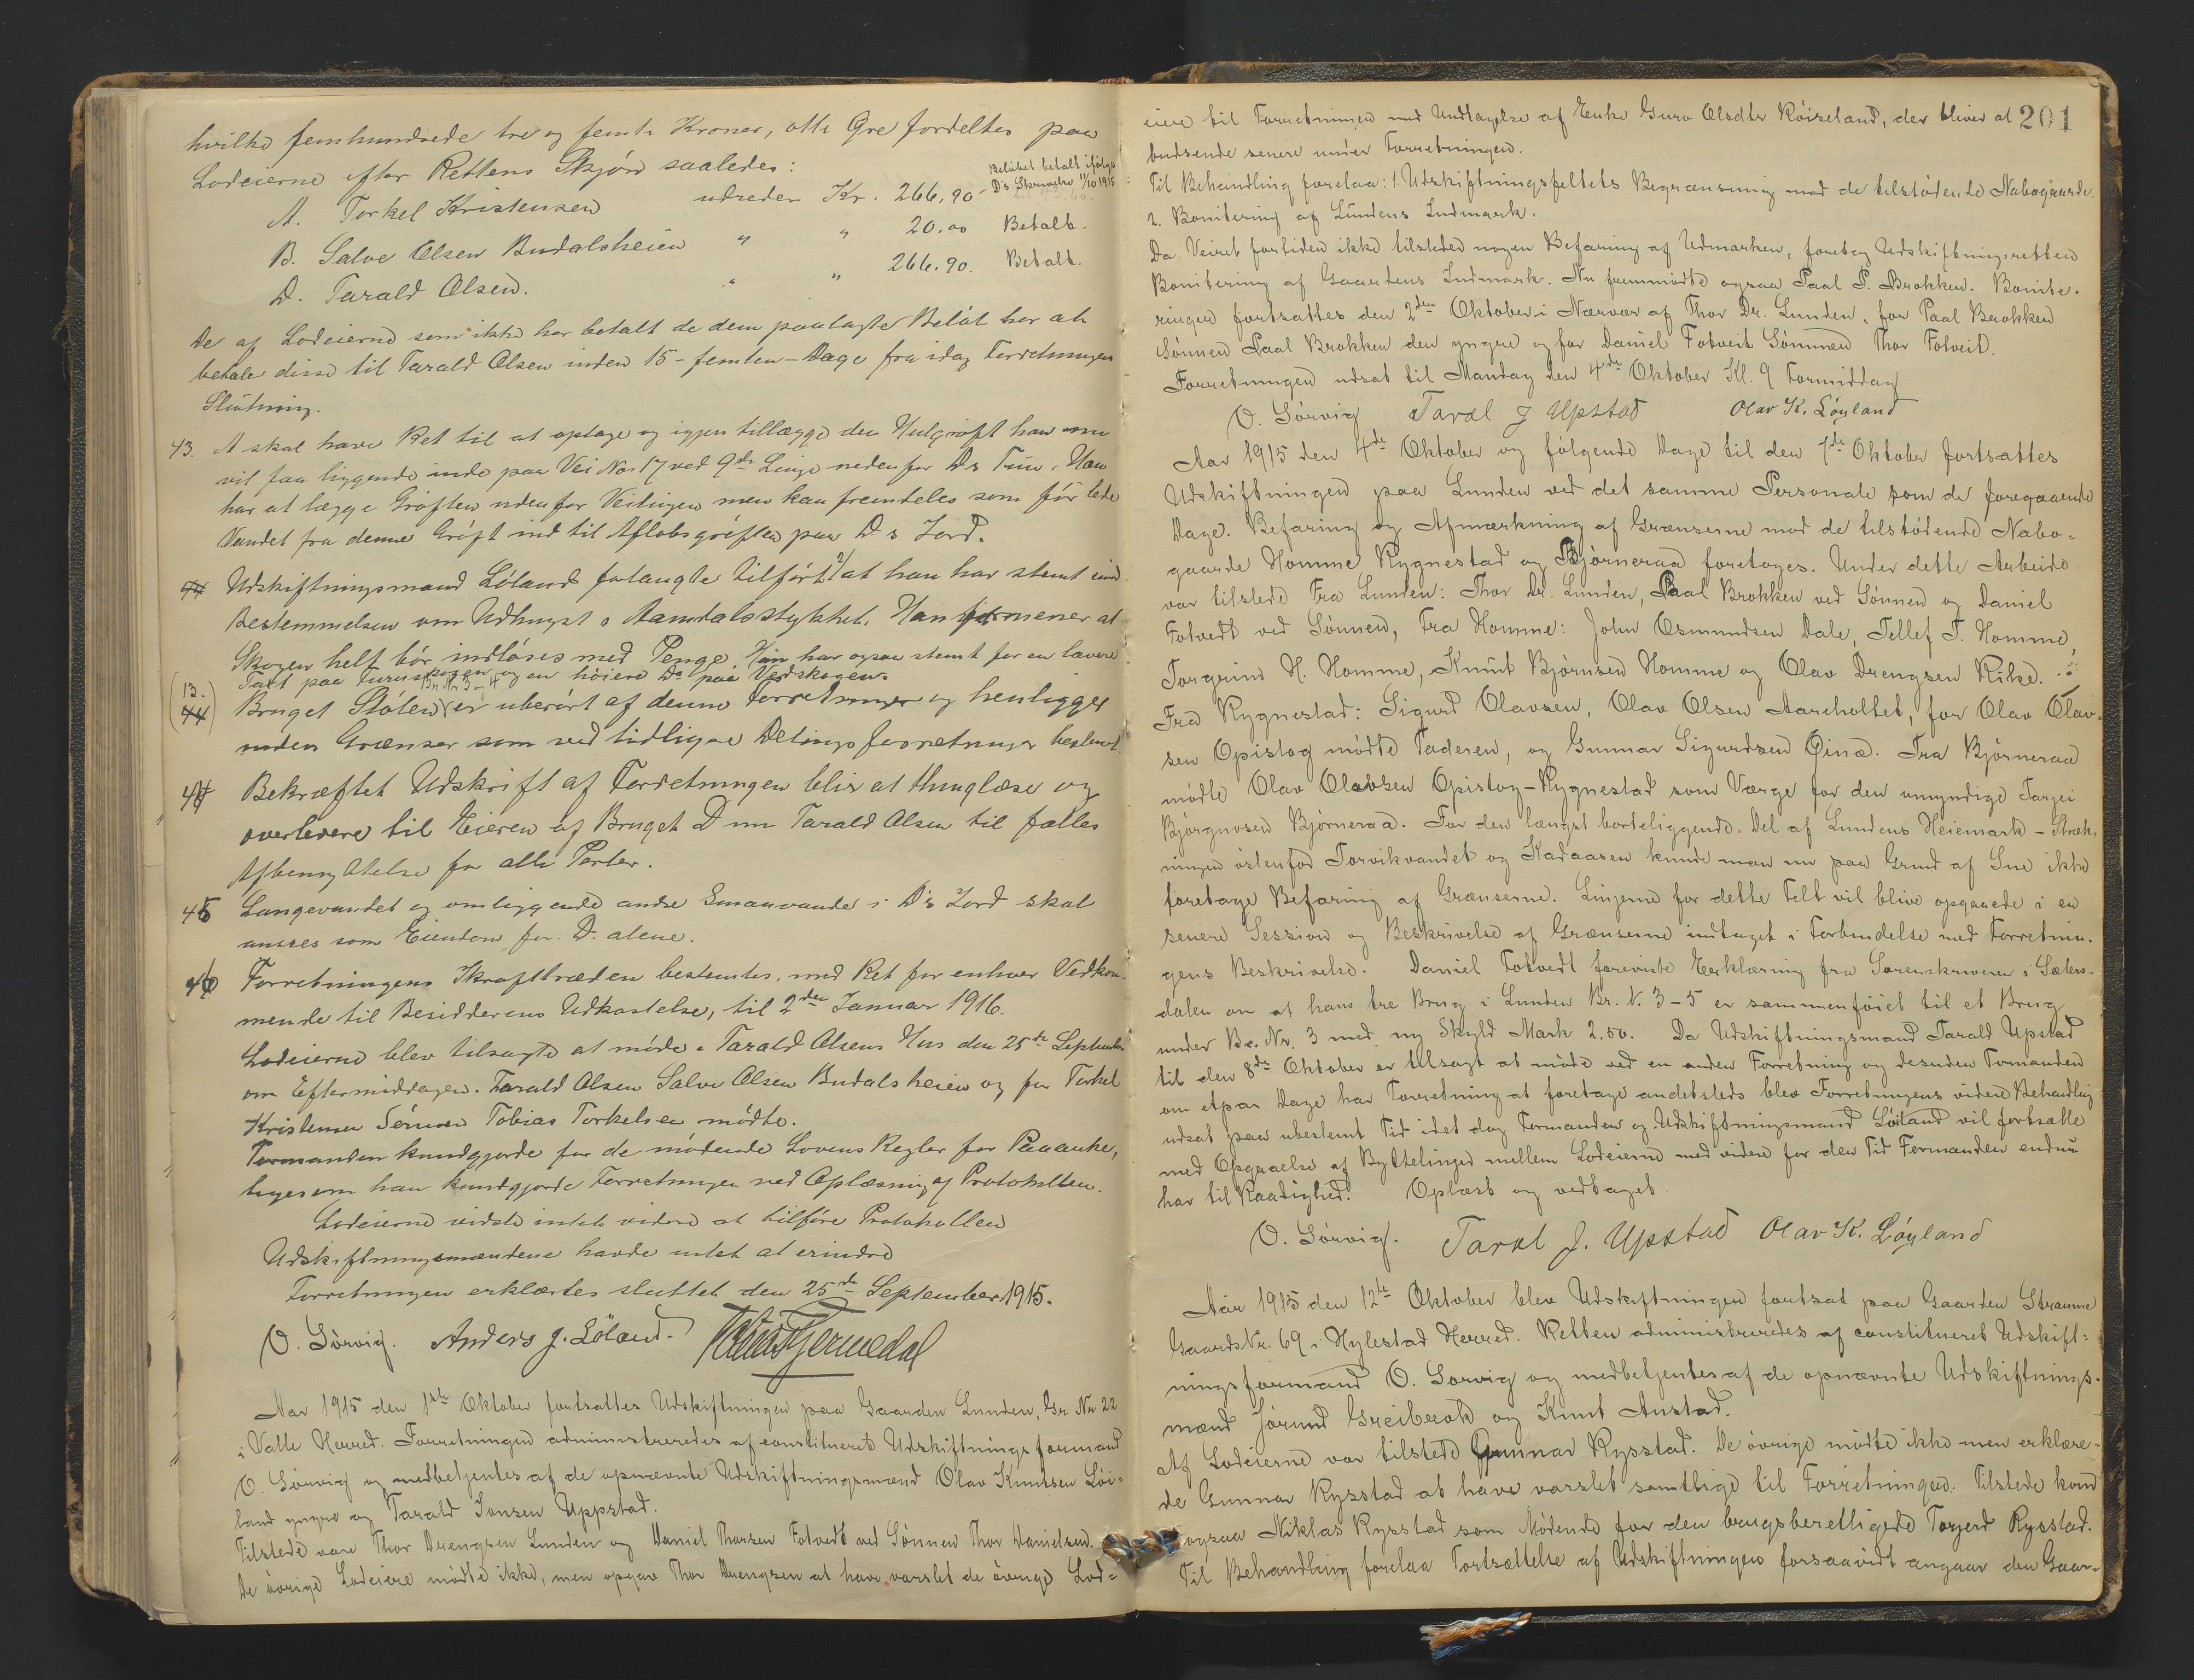 hvilke femhundrede tre og femti Kroner, otti Øre fordeltes paa
Lodeierne efter Rettens Skjøn saaledes:
A. Torkel Kristensen udreder Kr. 266,90 Beløbet betalt ifølge
D's Skrivelse 11/10 1915
B. Salve Olsen Budalsheien " " 20.00 Betalt.
D. Tarald Olsen. " " 266.90. Betalt.
De af Lodeierne som ikke har betalt de dem paalagte Beløb har at
betale disse til Tarald Olsen inden 15 - femten - Dage fra idag Forretningen
Slutning.
43. A skal have Ret til at optage og igjen tillægge den Hulgrøft han nu
vil faa liggende inde paa Vei No 17 ved 9de Linje nedenfor Ds Tun. Han
har at lægge Grøften udenfor Veilinjen men kan fremdeles som før lede
Vandet fra denne Grøft ind til Afløbsgrøften paa D's Jord.
44 Udskiftningsmand Løland forlangte tilført: at han har stemt imod
Bestemmelsen om Udhugst i Aamdalsstykket. Han formener at
Skogen helt bør indløses med Penge. Han har ogsaa stemt for en lavere
Taxt paa Furuskogen og en høiere Do paa Vedskogen.
(13. 44) Bruget Stølen Br. Nr. 3 og 4 er uberørt af denne Forretninger og henligger
inden Grænser som ved tidligere Delingsforretninger bestemt.
44 Bekræftet Udskrift af Forretningen blir at thinglæse og
overlevere til Eieren af Bruget D nu Tarald Olsen til fælles
Afbenyttelse for alle Parter.
45 Langevandet og omliggende andre Smaavande i D's Jord skal
ansees som Eiendom for D. alene.
46 Forretningens Ikrafttræden bestemtes, med Ret for enhver Vedkom-
mende til Besidderens Udkastelse, til 2den Januar 1916.
Lodeierne blev tilsagte at møde i Tarald Olsens Hus den 25de September
om Eftermiddagen. Tarald Olsen Salve Olsen Budalsheien og for Torkel
Kristensen Sønnen Tobias Torkelsen mødte.
Formanden kundgjorde for de mødende Lovens Regler for Paaanke,
ligesom han kundgjorde Forretningen ved Oplæsning af Protokollen.
Lodeierne vidste intet videre at tilføre Protokollen
Udskiftningsmændene havde intet at erindre
Forretningen erklærtes sluttet den 25de September 1915.
O. Sørvig. Anders J. Løland.
Aar 1915 den 1ste Oktober fortsattes Udskiftningen paa Gaarden Lunden, Gr. No 22
i Valle Herred. Forretningen administreredes af constitueret Udskiftningsformand
O. Sørvig og medbetjentes af de opnævnte Udskiftningsmænd Olav Knutsen Løi-
land yngre og Tarald Jonsen Uppstad.
Tilstede vare Thor Drengsen Lunden og Daniel Thorsen Fotvedt ved Sønnen Thor Danielsen.
De øvrige Lodeiere mødte ikke, men opgav Thor Drengsen at have varslet de øvrige Lod-
201
eiere til Forretningen med Undtagelse af Enke Guro Olsdtr Røiseland, der bliver at
budsende senere under Forretningen.
Til Behandling forelaa: 1. Udskiftningsfeltets Begrænsning mod de tilstødende Nabogaarde.
2. Bonitering af Lundens Indmark.
Da Veiret fortiden ikke tilsteder nogen Befaring af Udmarken, foretog Udskiftningsretten
Bonitering af Gaardens Indmark. Nu fremmødte ogsaa Paal P. Brokken. Bonite-
ringen fortsattes den 2den Oktober i Nærvær af Thor Dr. Lunden, for Paal Brokken
Sønnen Paal Brokken den yngre og for Daniel Fotveit Sønnen Thor Fotveit.
Forretningen udsat til Mandag den 4de Oktober Kl. 9 Formiddag
O. Sørvig Taral J Upstad Olav K. Løyland
Aar 1915 den 4de Oktober og følgende Dage til den 7de Oktober fortsattes
Udskiftningen paa Lunden ved det samme Personale som de foregaaende
Dage. Befaring og Afmærkning af Grænserne mod de tilstødende Nabo-
gaarde Homme Rygnestad og Bjørneraa foretoges. Under dette Arbeide
var tilstede Fra Lunden: Thor Dr. Lunden, Paal Brokken ved Sønnen og Daniel
Fotvedt ved Sønnen, Fra Homme: John Osmundsen Dale, Tellef T. Homme,
Torgrim H. Homme, Knut Bjørnsen Homme og Olav Drengsen Rike.
Fra Rygnestad: Sigurd Olavsen, Olav Olsen Aarcholtet, for Olav Olav-
sen Opistog mødte Faderen, og Gunnar Sigurdsen Øinæ. Fra Bjørneraa
mødte Olav Olavsen Opistog-Rygnestad som Værge for den umyndige Tarjei
Bjørgnosen Bjørneraa. For den længst bortliggende Del af Lundens Heiemark - Stræk-
ningen østenfor Torvikvandet og Kadaasen kunde man nu paa Grund af Sne ikke
foretage Befaring af Grænserne. Linjerne for dette Felt vil blive opgaaede i en
senere Session og Beskrivelse af Grænserne indtaget i Forbindelse med Forretnin-
gens Beskrivelse. Daniel Fotvedt foreviste Erklæring fra Sorenskriveren i Sæters-
dalen om at hans tre Brug i Lunden Br. N. 3-5 er sammenføiet til et Brug
under Br. Nr. 3 med ny Skyld Mark 2.50. Da Udskiftningsmand Tarald Upstad
til den 8de Oktober er tilsagt at møde ved en anden Forretning og desuden Formanden
om etpar Dage har Forretning at foretage andetsteds blev Forretningens videre Behandling
udsat paa ubestemt Tid idet dog Formanden og Udskiftningsmand Løiland vil fortsætte
med Opgaaelse af Byttelinjer mellem Lodeierne med videre for den Tid Formanden endnu
har til Raadighed. Oplæst og vedtaget.
O. Sørvig. Taral J. Upstad Olav K. Løyland
Aar 1915 den 12te Oktober blev Udskiftningen fortsat paa Gaarden Straume
Gaards Nr. 69 i Hylestad Herred. Retten administreredes af constitueret Udskift-
ningsformand O. Sørvig og medbetjentes af de opnævnte Udskiftnings-
mænd Jørund Greibrok og Knut Austad.
Af Lodeierne var tilstede Gunnar Rysstad. De øvrige mødte ikke men erklære-
de Gunnar Rysstad at have varslet samtlige til Forretningen. Tilstede kom
ogsaa Niklas Rysstad som Mødende for den brugsberettigede Torjerd Rysstad.
Til Behandling forelaa Fortsættelse af Udskiftningen forsaavidt angaar den Gaar-